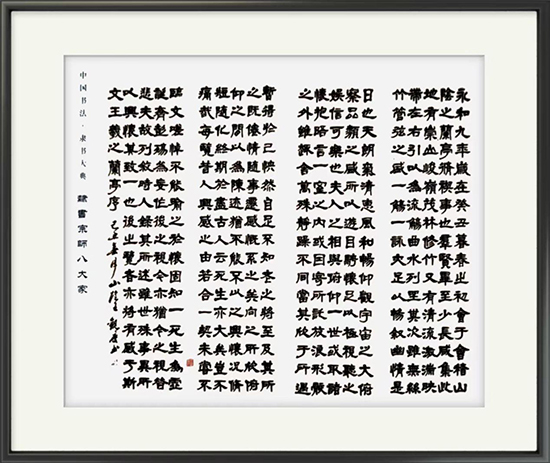 永和九年歲在癸丑暮春之初會于會稽山
陰之蘭亭脩稧事也羣賢畢至少長咸集此
地有崇山峻嶺茂林脩竹又有清流激湍映
帶左右引以為流觴曲水列坐其次雖無絲
竹管弦之盛一觴一詠亦足以暢敘幽情是
日也天朗氣清惠風和暢仰觀宇宙之大俯
察品類之盛所以遊目騁懷足以極視聽之
娛信可樂也夫人之相與俯仰一世或取諸
懷抱晤言一室之內或因寄所託放浪形骸
之外雖趣舍萬殊靜躁不同當其欣於所遇
暫得於己快然自足不知老之將至及其所
之既倦情隨事遷感慨係之矣向之所欣俯
仰之間以為陳迹猶不能不以之興懷況脩
短隨化終期於盡古人云死生亦大矣豈不
痛哉每覽昔人興感之由若合一契未嘗不
臨文嗟悼不能喻之於懷固知一死生為虛
誕齊彭殤為妄作後之視今亦猶今之視昔
悲夫故列敘時人錄其所述雖世殊事異所
以興懷其致一也後之覽者亦將有感于斯
文王羲之蘭亭序 己丑春
中国书法·隶书大典 隸書宗師八大家